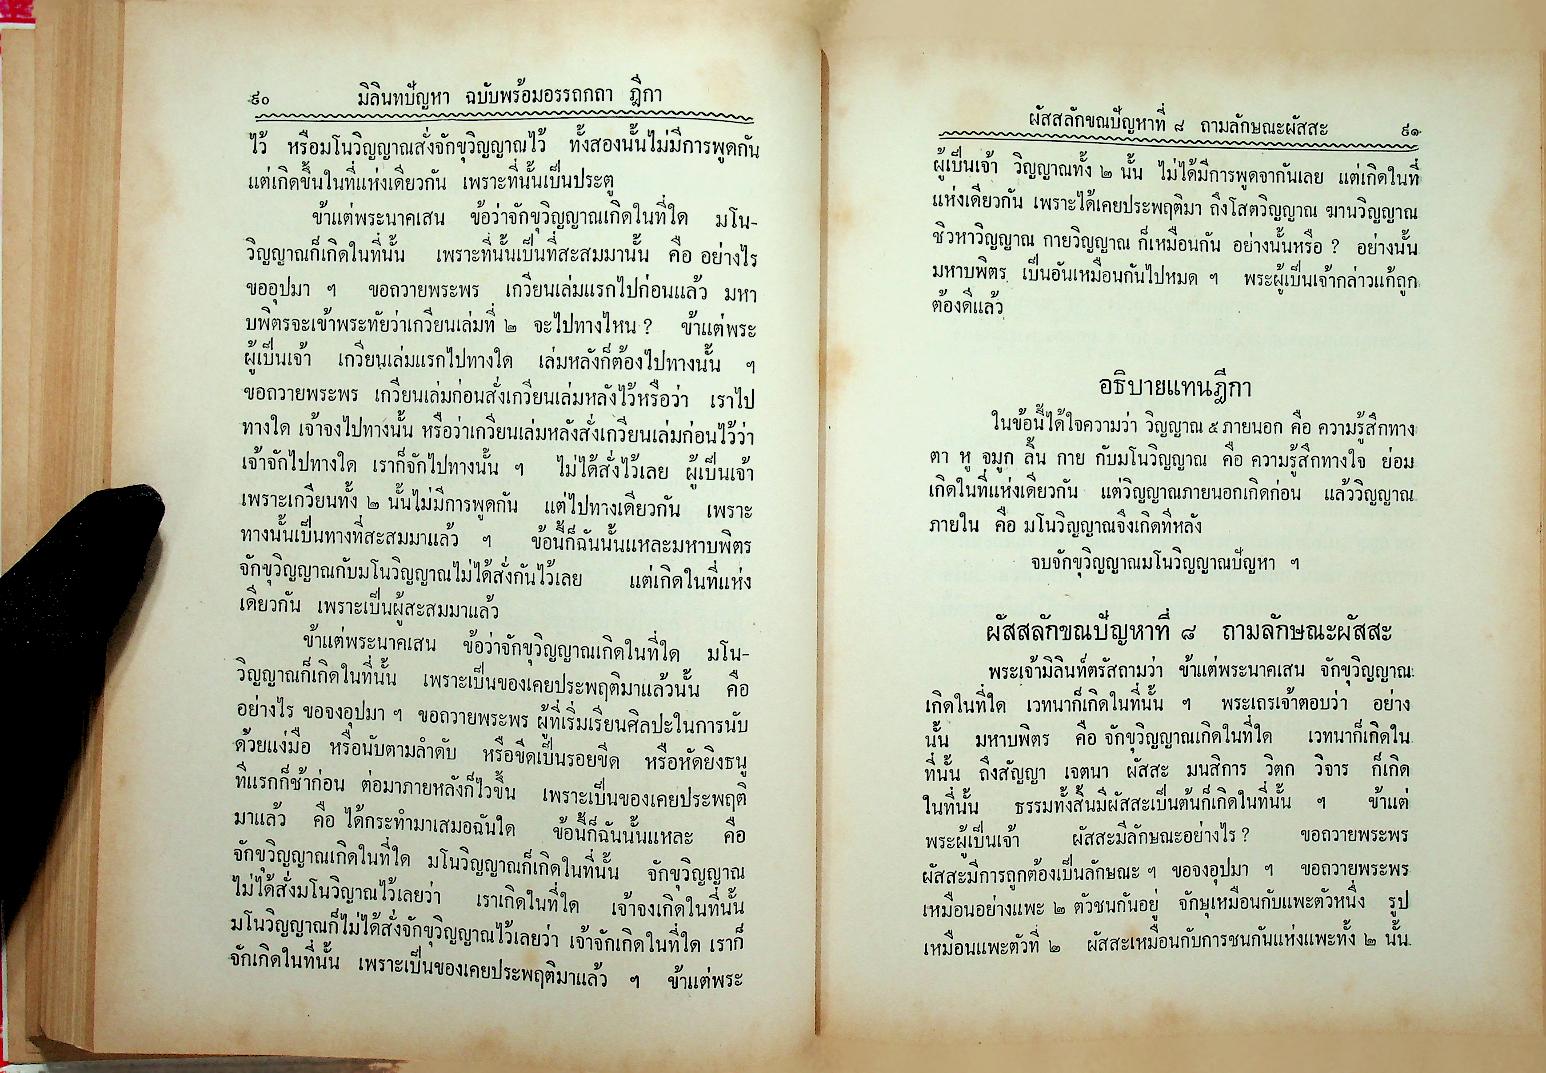 ๙๐ มิลินทปัญหา ฉบับพร้อมอรรถกถา ฎีกา
ไว้ หรือมโนวิญญาณสั่งจักขุวิญญาณไว้ ทั้งสองนั้นไม่มีการพูดกัน
แต่เกิดขึ้นในที่แห่งเดียวกัน เพราะที่นั้นเป็นประตู
ข้าแต่พระนาคเสน ข้อว่าจักขุวิญญาณเกิดในที่ใด มโน-
วิญญาณก็เกิดในที่นั้น เพราะที่นั้นเป็นที่สะสมมานั้น คือ อย่างไร
ขออุปมา ฯ ขอถวายพระพร เกวียนเล่มแรกไปก่อนแล้ว มหา
บพิตรจะเข้าพระทัยว่าเกวียนเล่มที่ ๒ จะไปทางไหน ? ข้าแต่พระ
ผู้เป็นเจ้า เกวียนเล่มแรกไปทางใด เล่มหลังก็ต้องไปทางนั้น ฯ
ขอถวายพระพร เกวียนเล่มก่อนสั่งเกวียนเล่มหลังไว้หรือว่า เราไป
ทางใด เจ้าจงไปทางนั้น หรือว่าเกวียนเล่มหลังสั่งเกวียนเล่มก่อนไว้ว่า
เจ้าจักไปทางใด เราก็จักไปทางนั้น ฯ ไม่ได้สั่งไว้เลย ผู้เป็นเจ้า
เพราะเกวียนทั้ง ๒ นั้นไม่มีการพูดกัน แต่ไปทางเดียวกัน เพราะ
ทางนั้นเป็นทางที่สะสมมาแล้ว ฯ ข้อนี้ก็ฉันนั้นแหละมหาบพิตร
จักขุวิญญาณกับมโนวิญญาณไม่ได้สั่งกันไว้เลย แต่เกิดในที่แห่ง
เดียวกัน เพราะเป็นผู้สะสมมาแล้ว
ข้าแต่พระนาคเสน ข้อว่าจักขุวิญญาณเกิดในที่ใด มโน-
วิญญาณก็เกิดในที่นั้น เพราะเป็นของเคยประพฤติมาแล้วนั้น คือ
อย่างไร ขอจงอุปมา ฯ ขอถวายพระพร ผู้ที่เริ่มเรียนศิลปะในการนับ
ด้วยแง่มือ หรือนับตามลำดับ หรือขีดเป็นรอยขีด หรือหัดยิงธนู
ทีแรกก็ช้าก่อน ต่อมาภายหลังก็ไวขึ้น เพราะเป็นของเคยประพฤติ
มาแล้ว คือ ได้กระทำมาเสมอฉันใด ข้อนี้ก็ฉันนั้นแหละ คือ
จักขุวิญญาณเกิดในที่ใด มโนวิญญาณก็เกิดในที่นั้น จักขุวิญญาณ
ไม่ได้สั่งมโนวิญาณไว้เลยว่า เราเกิดในที่ใด เจ้าจงเกิดในที่นั้น
มโนวิญญาณก็ไม่ได้สั่งจักขุวิญญาณไว้เลยว่า เจ้าจักเกิดในที่ใด เราก็
จักเกิดในที่นั้น เพราะเป็นของเคยประพฤติมาแล้ว ฯ ข้าแต่พระ
ผัสสลักขณปัญหาที่ ๘ ถามลักษณะผัสสะ ๙๑
ผู้เป็นเจ้า วิญญาณทั้ง ๒ นั้น ไม่ได้มีการพูดจากันเลย แต่เกิดในที่
แห่งเดียวกัน เพราะได้เคยประพฤติมา ถึงโสตวิญญาณ ฆานวิญญาณ
ชิวหาวิญญาณ กายวิญญาณ ก็เหมือนกัน อย่างนั้นหรือ ? อย่างนั้น
มหาบพิตร เป็นอันเหมือนกันไปหมด ฯ พระผู้เป็นเจ้ากล่าวแก้ถูก
ต้องดีแล้ว
อธิบายแทนฎีกา
ในข้อนี้ได้ใจความว่า วิญญาณ ๕ ภายนอก คือ ความรู้สึกทาง
ตา หู จมูก ลิ้น กาย กับมโนวิญญาณ คือ ความรู้สึกทางใจ ย่อม
เกิดในที่แห่งเดียวกัน แต่วิญญาณภายนอกเกิดก่อน แล้ววิญญาณ
ภายใน คือ มโนวิญญาณจึงเกิดทีหลัง
จบจักขุวิญญาณมโนวิญญาณปัญหา ฯ
ผัสสลักขณปัญหาที่ ๘ ถามลักษณะผัสสะ
พระเจ้ามิลินท์ตรัสถามว่า ข้าแต่พระนาคเสน จักขุวิญญาณ
เกิดในที่ใด เวทนาก็เกิดในที่นั้น ฯ พระเถรเจ้าตอบว่า อย่าง
นั้น มหาบพิตร คือ จักขุวิญญาณเกิดในที่ใด เวทนาก็เกิดใน
ที่นั้น ถึงสัญญา เจตนา ผัสสะ มนสิการ วิตก วิจาร ก็เกิด
ในที่นั้น ธรรมทั้งสิ้นมีผัสสะเป็นต้นก็เกิดในที่นั้น ฯ ข้าแต่
พระผู้เป็นเจ้า ผัสสะมีลักษณะอย่างไร ? ขอถวายพระพร
ผัสสะมีการถูกต้องเป็นลักษณะ ฯ ขอจงอุปมา ฯ ขอถวายพระพร
เหมือนอย่างแพะ ๒ ตัวชนกันอยู่ จักษุเหมือนกับแพะตัวหนึ่ง รูป
เหมือนแพะตัวที่ ๒ ผัสสะเหมือนกับการชนกันแห่งแพะทั้ง ๒ นั้น